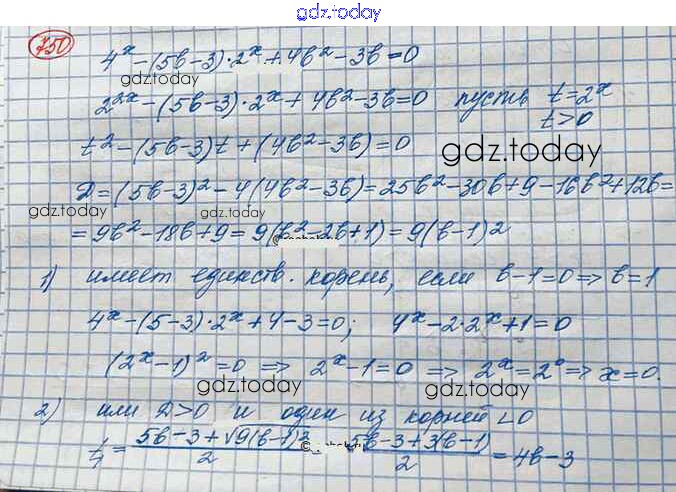 gdz.today
750
4ˣ-(5b-3)·2ˣ+4b²-3b=0
gdz.today
2²ˣ-(5b-3)·2ˣ+4b²-3b=0 пусть t=2ˣ
t>0
t²-(5b-3)t+(4b²-3b)=0
gdz.today
D=(5b-3)²-4(4b²-3b)=25b²-30b+9-16b²+12b=
gdz.today gdz.today
=9b²-18b+9=9(b²-2b+1)=9(b-1)²
1) имеет единств. корень, если b-1=0⇒b=1
4ˣ-(5-3)·2ˣ+4-3=0; 4ˣ-2·2ˣ+1=0
(2ˣ-1)²=0 ⇒ 2ˣ-1=0 ⇒ 2ˣ=2⁰⇒x=0.
gdz.today gdz.today
2) или D>0 и один из корней <0
t₁=(5b-3+√9(b-1)²)/2 = (5b-3+3(b-1))/2 =4b-3